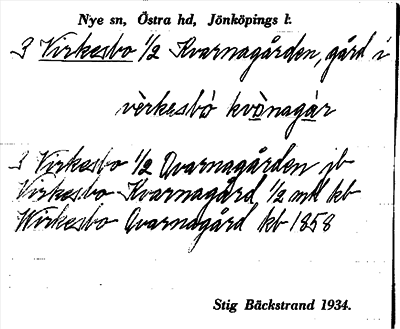 Nye sn, Östra hd, Jönköpings l:
3 Virkesbo 1/2 Kvarnagården, gård i
vèrkesbò kvànagàr
3 Virkesbo 1/2 Qvarnagården jb
Virkesbo Kvarnagård 1/2 mtl kb
Wirkesbo Qvarnagård kb 1858
Stig Bäckstrand 1934.